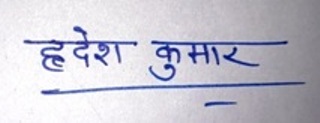 हृदेश कुमार